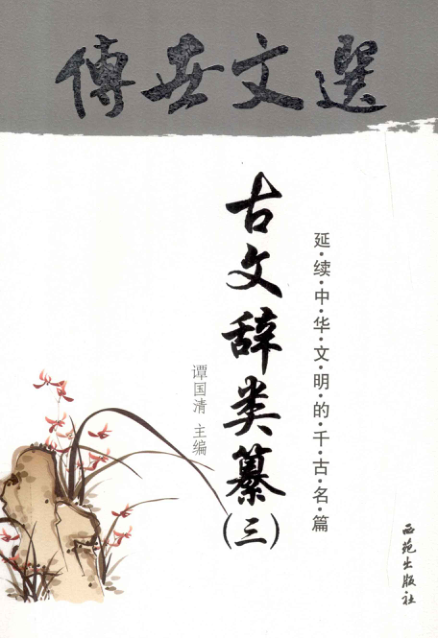 傳世文選
延·续·中·华·文·明·的·千·古·名·篇
古文辞类纂(三)
谭国清 主编
西苑出版社